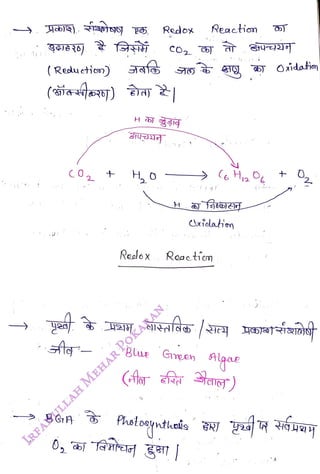 → प्रकाश संश्लेषण एक Redox Reaction का
उदाहरण है जिसमें CO2 का तो अपचयन
(Reduction) जबकि जल के अणु का Oxidation
(ऑक्सीकरण) होता है|
H का जुड़ाव
अपचयन
CO2 + H2O → C6H12O6 + O2
H का निष्कासन
Oxidation
Redox Reaction
→ पृथ्वी के प्रथम वास्तविक / सत्य प्रकाश संश्लेषी
जीव – Blue Green Algae
(नील हरित शैवाल)
→ BGA के Photosynthesis द्वारा पृथ्वी पर सर्वप्रथम
O2 का विमोचन हुआ|
IRFADULLAH MEHAR POKARAN